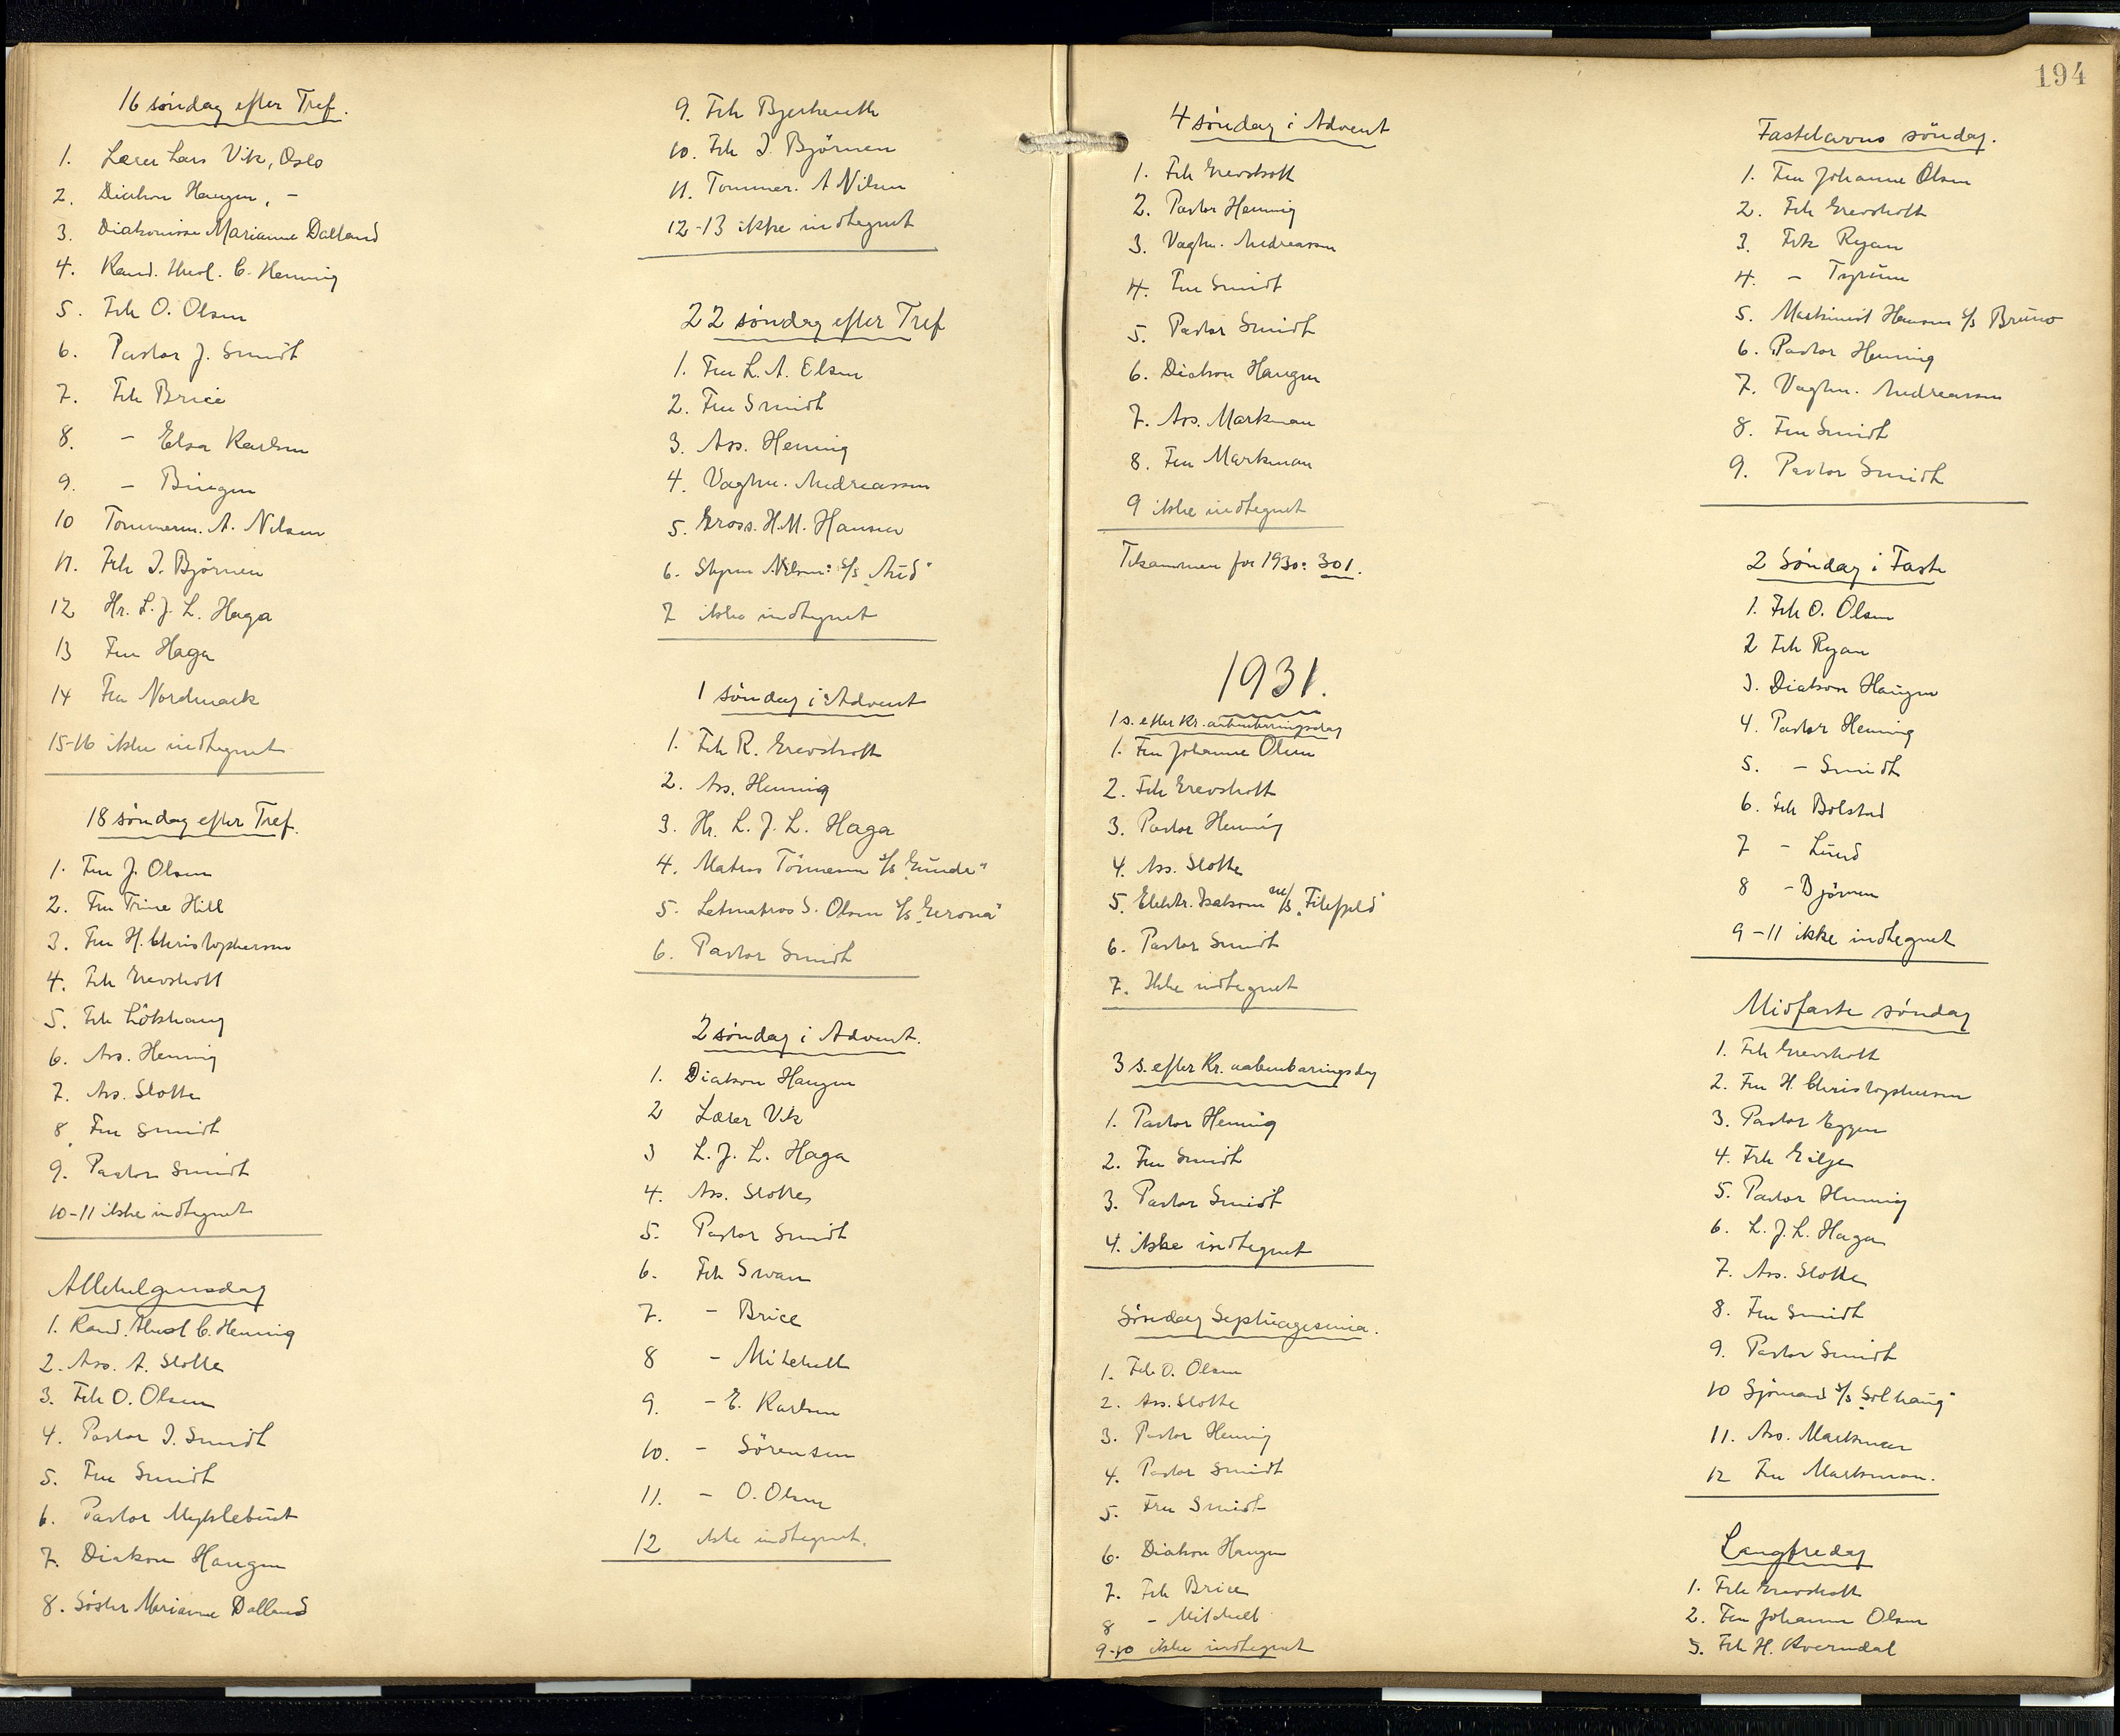 16 søndag efter Tref.
1. Lærer Lars Vik, Oslo
2. Diakon Haugen, -
3. Diakonisse Marianne Dalland
4. Kand. theol. C. Hennig
5. Frk O. Olsen
6. Pastor J. Smidt
7. Frk Brice
8. - Elsa Karlsen
9. - Bingen
10 Tømmerm. A. Nilsen
11. Frk I. Bjørnen
12 Hr. L. J. L. Haga
13 Fru Haga
14 Fru Nordmark
15-16 ikke indtegnet
18 søndag efter Tref.
1. Fru J. Olsen
2. Fru Trine Hill
3. Fru H. Christophersen
4. Frk Grevskott
5. Frk Lökhaug
6. Ass. Hennig
7. Ass. Slotte
8. Fru Smidt
9. Pastor Smidt
10-11 ikke indtegnet
Allehelgensdag
1. Kand. theol C. Hennig
2. Ass. A. Slotte
3. Frk O. Olsen
4. Pastor J. Smidt
5. Fru Smidt
6. Pastor Myklebust
7. Diakon Haugen
8. Søster Marianne Dalland
9. Frk Bjerkneth
10. Frk I. Björnen
11. Tømmer. A Nilsen
12-13 ikke indtegnet
22 søndag efter Tref
1. Fru L. A. Elsen
2. Fru Smidt
3. Ass. Hennig
4. Vagtm. Andreassen
5. Gross. H.M. Hansen
6. Styrm Nilsen: s/s „Aud"
7 ikke indtegnet
1 søndag i Advent
1. Frk R. Grevskott
2. Ass. Hennig
3. Hr. L. J. L. Haga
4. Matros Tönnesen s/s „Gunda"
5. Letmatros S. Olsen s/s „Gerona"
6. Pastor Smidt
2 søndag i Advent.
1. Diakon Haugen
2 Lærer Vik
3 L. J. L. Haga
4. Ass. Slotte
5. Pastor Smidt
6. Frk Swan
7. - Brice
8 - Mitchell
9. - E. Karlsen
10. - Sörensen
11. - O. Olsen
12 ikke indtegnet.
194
4 søndag i Advent
1. Frk Grevskott
2. Pastor Hennig
3. Vagtm. Andreassen
4. Fru Smidt
5. Pastor Smidt
6. Diakon Haugen
7. Ass. Markman
8. Fru Markman
9 ikke indtegnet
Tilsammen for 1930: 301.
1931.
1 s. efter Kr. aabenbaringsdag
1. Fru Johanne Olsen
2. Frk Grevskott
3. Pastor Hennig
4. Ass. Slotte
5. Elektr. Isaksen m/s „Filefjeld"
6. Pastor Smidt
7. Ikke indtegnet
3 s. efter Kr. aabenbaringsdag
1. Pastor Hennig
2. Fru Smidt
3. Pastor Smidt
4. ikke indtegnet
Søndag Septuagesima.
1. Frk O. Olsen
2. Ass. Slotte
3. Pastor Hennig
4. Pastor Smidt
5. Fru Smidt
6. Diakon Haugen
7. Frk Brice
8 - Mitchell
9-10 ikke indtegnet
Fastelavns søndag.
1. Fru Johanne Olsen
2. Frk Grevskott
3. Frk Ryan
4. -
5. Maskinist Hansen s/s Bruno
6. Pastor Hennig
7. Vagtm. Andreassen
8. Fru Smidt
9. Pastor Smidt
2 Søndag i Faste
1. Frk O. Olsen
2 Frk Ryan
3. Diakon Haugen
4. Pastor Hennig
5. - Smidt
6. Frk Bolstad
7 - Lund
8 - Bjørnen
9-11 ikke indtegnet
Midfaste søndag
1. Frk Grevskott
2. Fru H. Christophersen
3. Pastor Eggen
4. Frk Gilje
5. Pastor Hennig
6. L. J. L. Haga
7. Ass. Slotte
8. Fru Smidt
9. Pastor Smidt
10 Sjømand s/s „Solhaug"
11. Ass. Markman
12 Fru Markman.
Langfredag
1. Frk Grevskott
2. Fru Johanne Olsen
3. Frk H. Kverndal